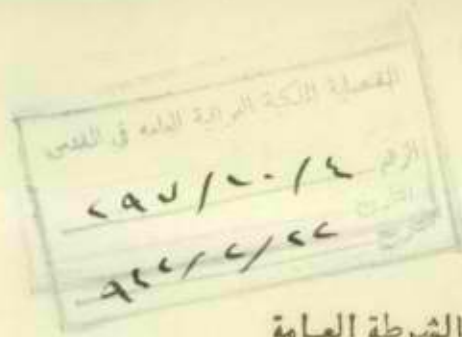 القنصلية الملكية العراقية العامة في القدس
الرقم ٢٩٧/٢٠/٤
التاريخ ٩٤٤/٢/٢٢
الشرطة العامة